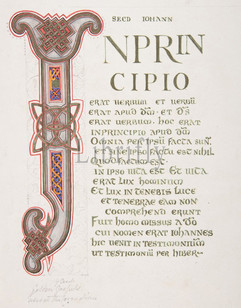 SECD IOHANN
INPRIN
CIPIO
ERAT VERBUM ET VERBU
ERAT APUD DM ET DS
ERAT VERBUM. HOC ERAT
IN PRINCIPIO APUD DM
OMNIA PER IPSU FACTA SUNT
ET SINE IPSO FACTU EST NIHIL
QUOD FACTUM EST
IN IPSO VITA EST ET VITA
ERAT LUX HOMINUM
ET LUX IN TENEBRIS LUCE
ET TENEBRAE EAM NON
COMPREHENDERUNT
FUIT HOMO MISSUS A DO
CUI NOMEN ERAT IOHANNES
HIC VENIT IN TESTIMONIUM
UT TESTIMONIUM PER HIBER